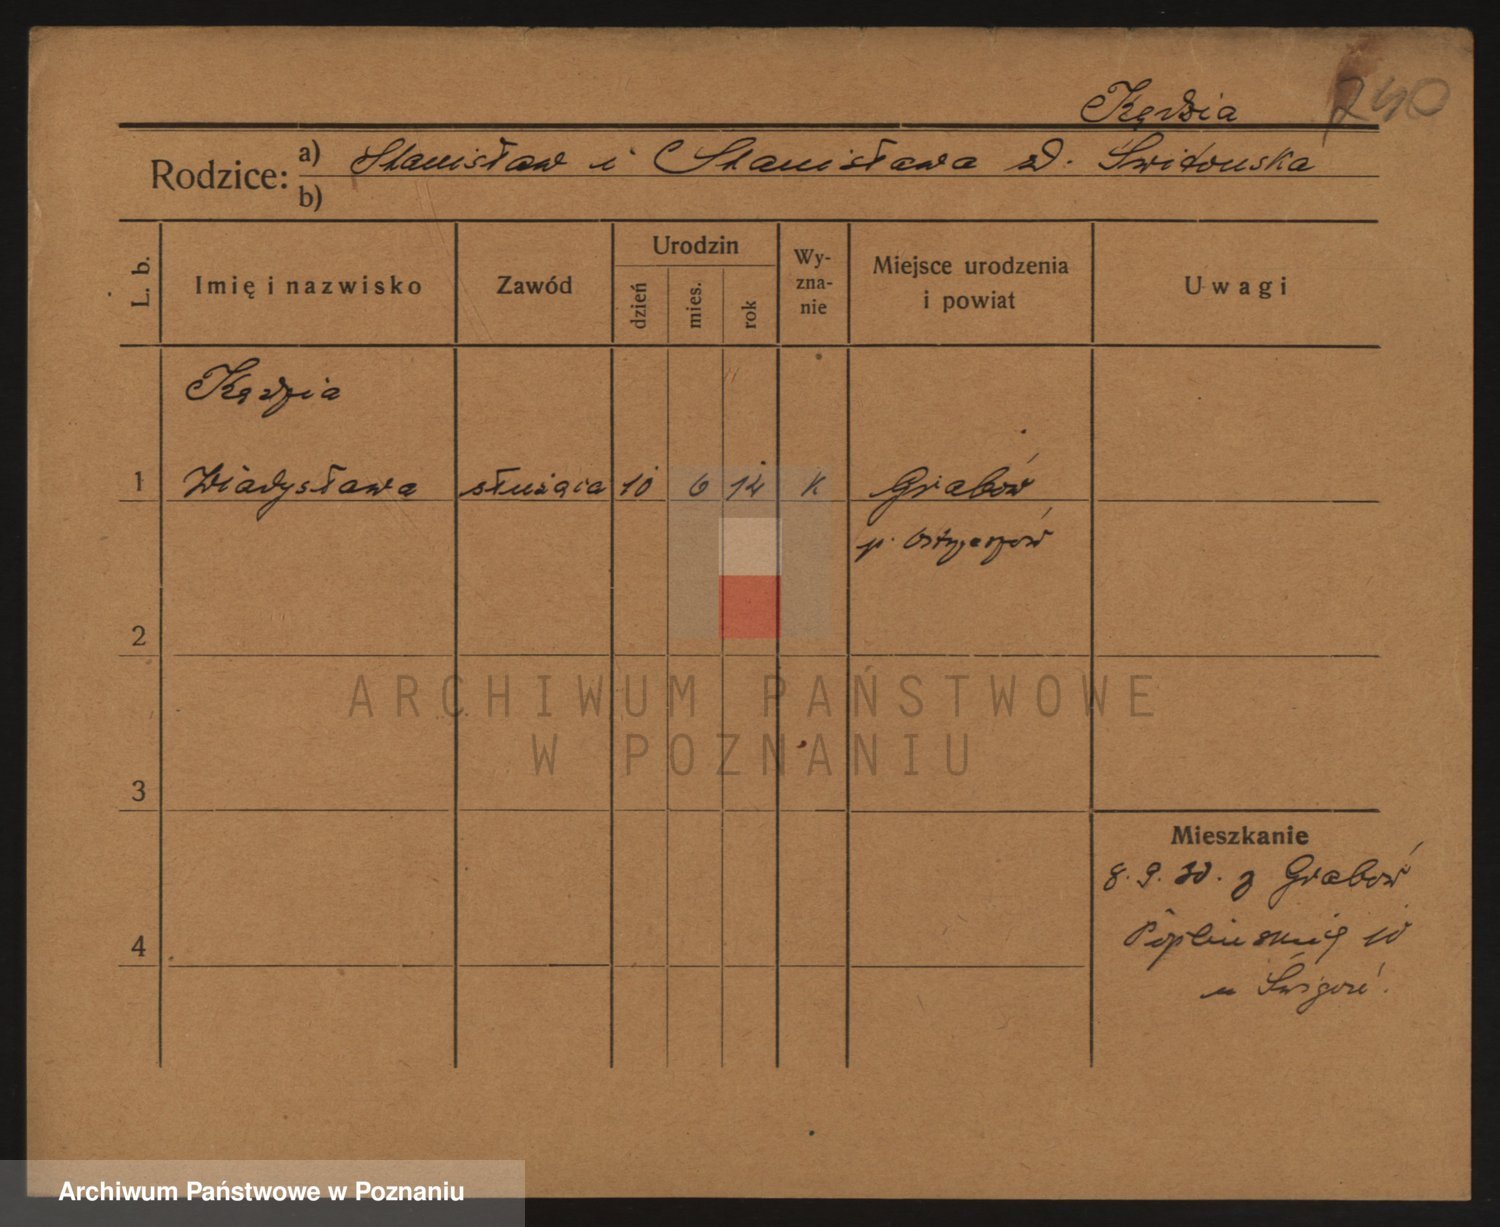 Kędzia 240
Rodzice: a) Stanisław i Stanisława d.
b)
L. b. Imię i nazwisko Zawód Urodzin dzień mies. rok Wy-zna-nie Miejsce urodzenia i powiat Uwagi
Kędzia
1 Władysława służąca 10 6 14 k Grabów
p. Ostrzeszów
2
ARCHIWUM PAŃSTWOWE
W POZNANIU
3
Mieszkanie
8. 9. 30. z Grabów
4 10
u
Archiwum Państwowe w Poznaniu